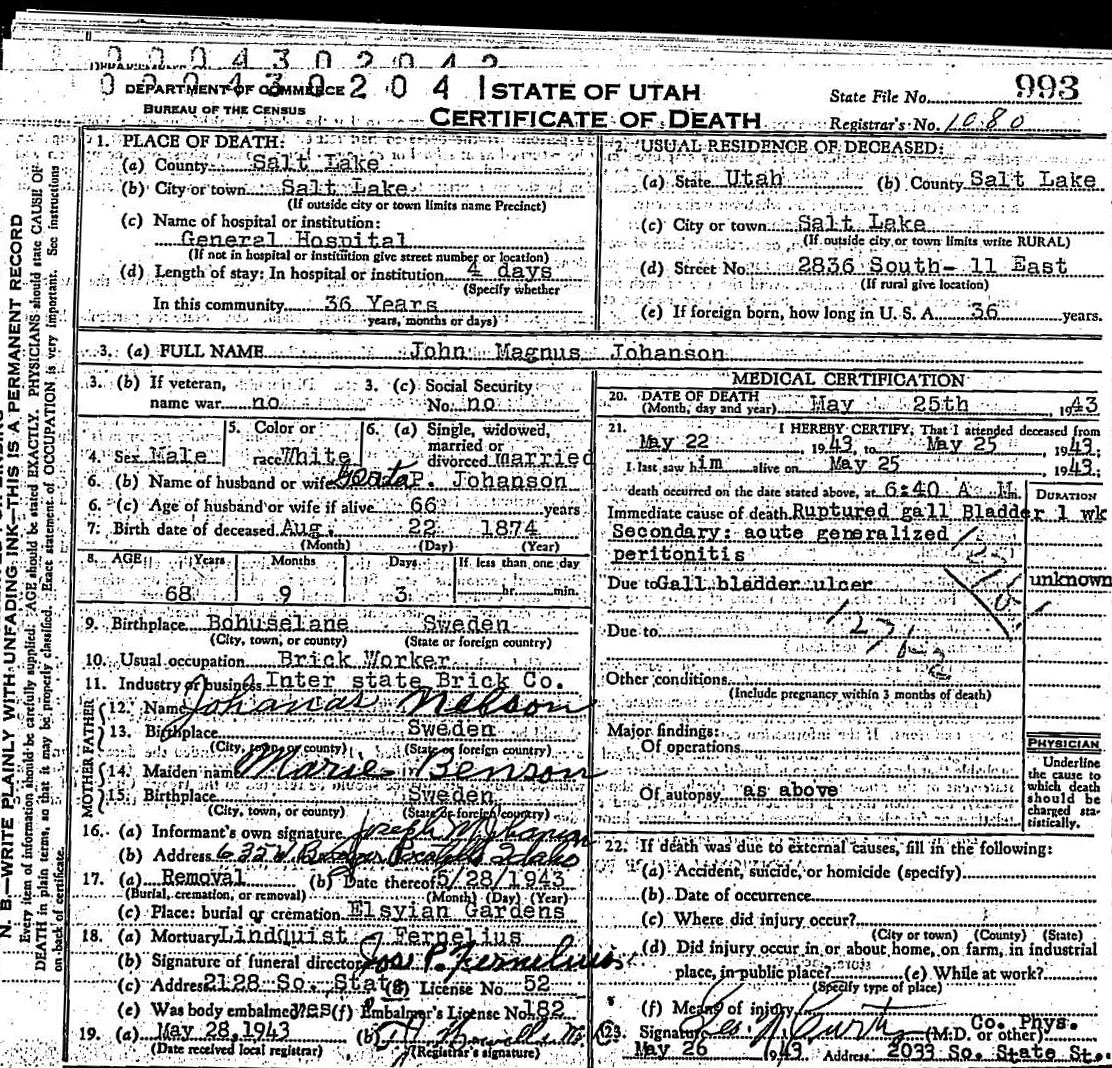 0 0 0 4 3 0 2 0 4 2
0 0 0 4 3 0 2 0 4 1
DEPARTMENT OF COMMERCE
BUREAU OF THE CENSUS
STATE OF UTAH
CERTIFICATE OF DEATH
State File No. 993
Registrar's No. 1080
N. B.—WRITE PLAINLY WITH UNFADING INK—THIS IS A PERMANENT RECORD
Every item of information should be carefully supplied. AGE should be stated EXACTLY. PHYSICIANS should state CAUSE OF
DEATH in plain terms, so that it may be properly classified. Exact statement of OCCUPATION is very important. See instructions
on back of certificate.
1. PLACE OF DEATH:
(a) County Salt Lake
(b) City or town Salt Lake
(If outside city or town limits name Precinct)
(c) Name of hospital or institution:
General Hospital
(If not in hospital or institution give street number or location)
(d) Length of stay: In hospital or institution 4 days
(Specify whether
In this community 36 Years
years, months or days)
2. USUAL RESIDENCE OF DECEASED:
(a) State Utah (b) County Salt Lake
(c) City or town Salt Lake
(If outside city or town limits write RURAL)
(d) Street No. 2836 South- 11 East
(If rural give location)
(e) If foreign born, how long in U. S. A. 36 years.
3. (a) FULL NAME John Magnus Johanson
3. (b) If veteran, name war no
3. (c) Social Security No. no
4. Sex Male
5. Color or race White
6. (a) Single, widowed, married or divorced married
6. (b) Name of husband or wife P. Johanson
6. (c) Age of husband or wife if alive 66 years
7. Birth date of deceased Aug. 22 1874
(Month) (Day) (Year)
8. AGE Years Months Days If less than one day
68 9 3 hr. min.
9. Birthplace Bohuselane Sweden
(City, town, or county) (State or foreign country)
10. Usual occupation Brick Worker
11. Industry or business Inter state Brick Co.
FATHER
12. Name Nelson
13. Birthplace Sweden
(City, town, or county) (State or foreign country)
MOTHER
14. Maiden name Marie Benson
15. Birthplace Sweden
(City, town, or county) (State or foreign country)
16. (a) Informant's own signature Joseph
(b) Address 632 W Pocatello Idaho
17. (a) Removal (b) Date thereof 5/28/1943
(Burial, cremation, or removal) (Month) (Day) (Year)
(c) Place: burial or cremation Elsyian Gardens
18. (a) Mortuary Lindquist Fernelius
(b) Signature of funeral director Jos P. Fernelius
(c) Address 2128 So. State License No. 52
(e) Was body embalmed? yes (f) Embalmer's License No. 182
19. (a) May 28, 1943 (b)
(Date received local registrar) (Registrar's signature)
MEDICAL CERTIFICATION
20. DATE OF DEATH
(Month, day and year) May 25th, 1943
21. I HEREBY CERTIFY, That I attended deceased from
May 22, 1943, to May 25, 1943;
I last saw him alive on May 25, 1943;
death occurred on the date stated above, at 6:40 A. M.
DURATION
Immediate cause of death Ruptured gall Bladder 1 wk
Secondary: acute generalized
peritonitis
Due to Gall bladder ulcer unknown
Due to
Other conditions
(Include pregnancy within 3 months of death)
Major findings:
Of operations
Of autopsy as above
PHYSICIAN
Underline
the cause to
which death
should be
charged sta-
tistically.
22. If death was due to external causes, fill in the following:
(a) Accident, suicide, or homicide (specify)
(b) Date of occurrence
(c) Where did injury occur?
(City or town) (County) (State)
(d) Did injury occur in or about home, on farm, in industrial
place, in public place? (e) While at work?
(Specify type of place)
(f) Means of injury
Co. Phys.
23. Signature Geo. N. Curtis (M.D. or other)
May 26 1943 Address 2033 So. State St.